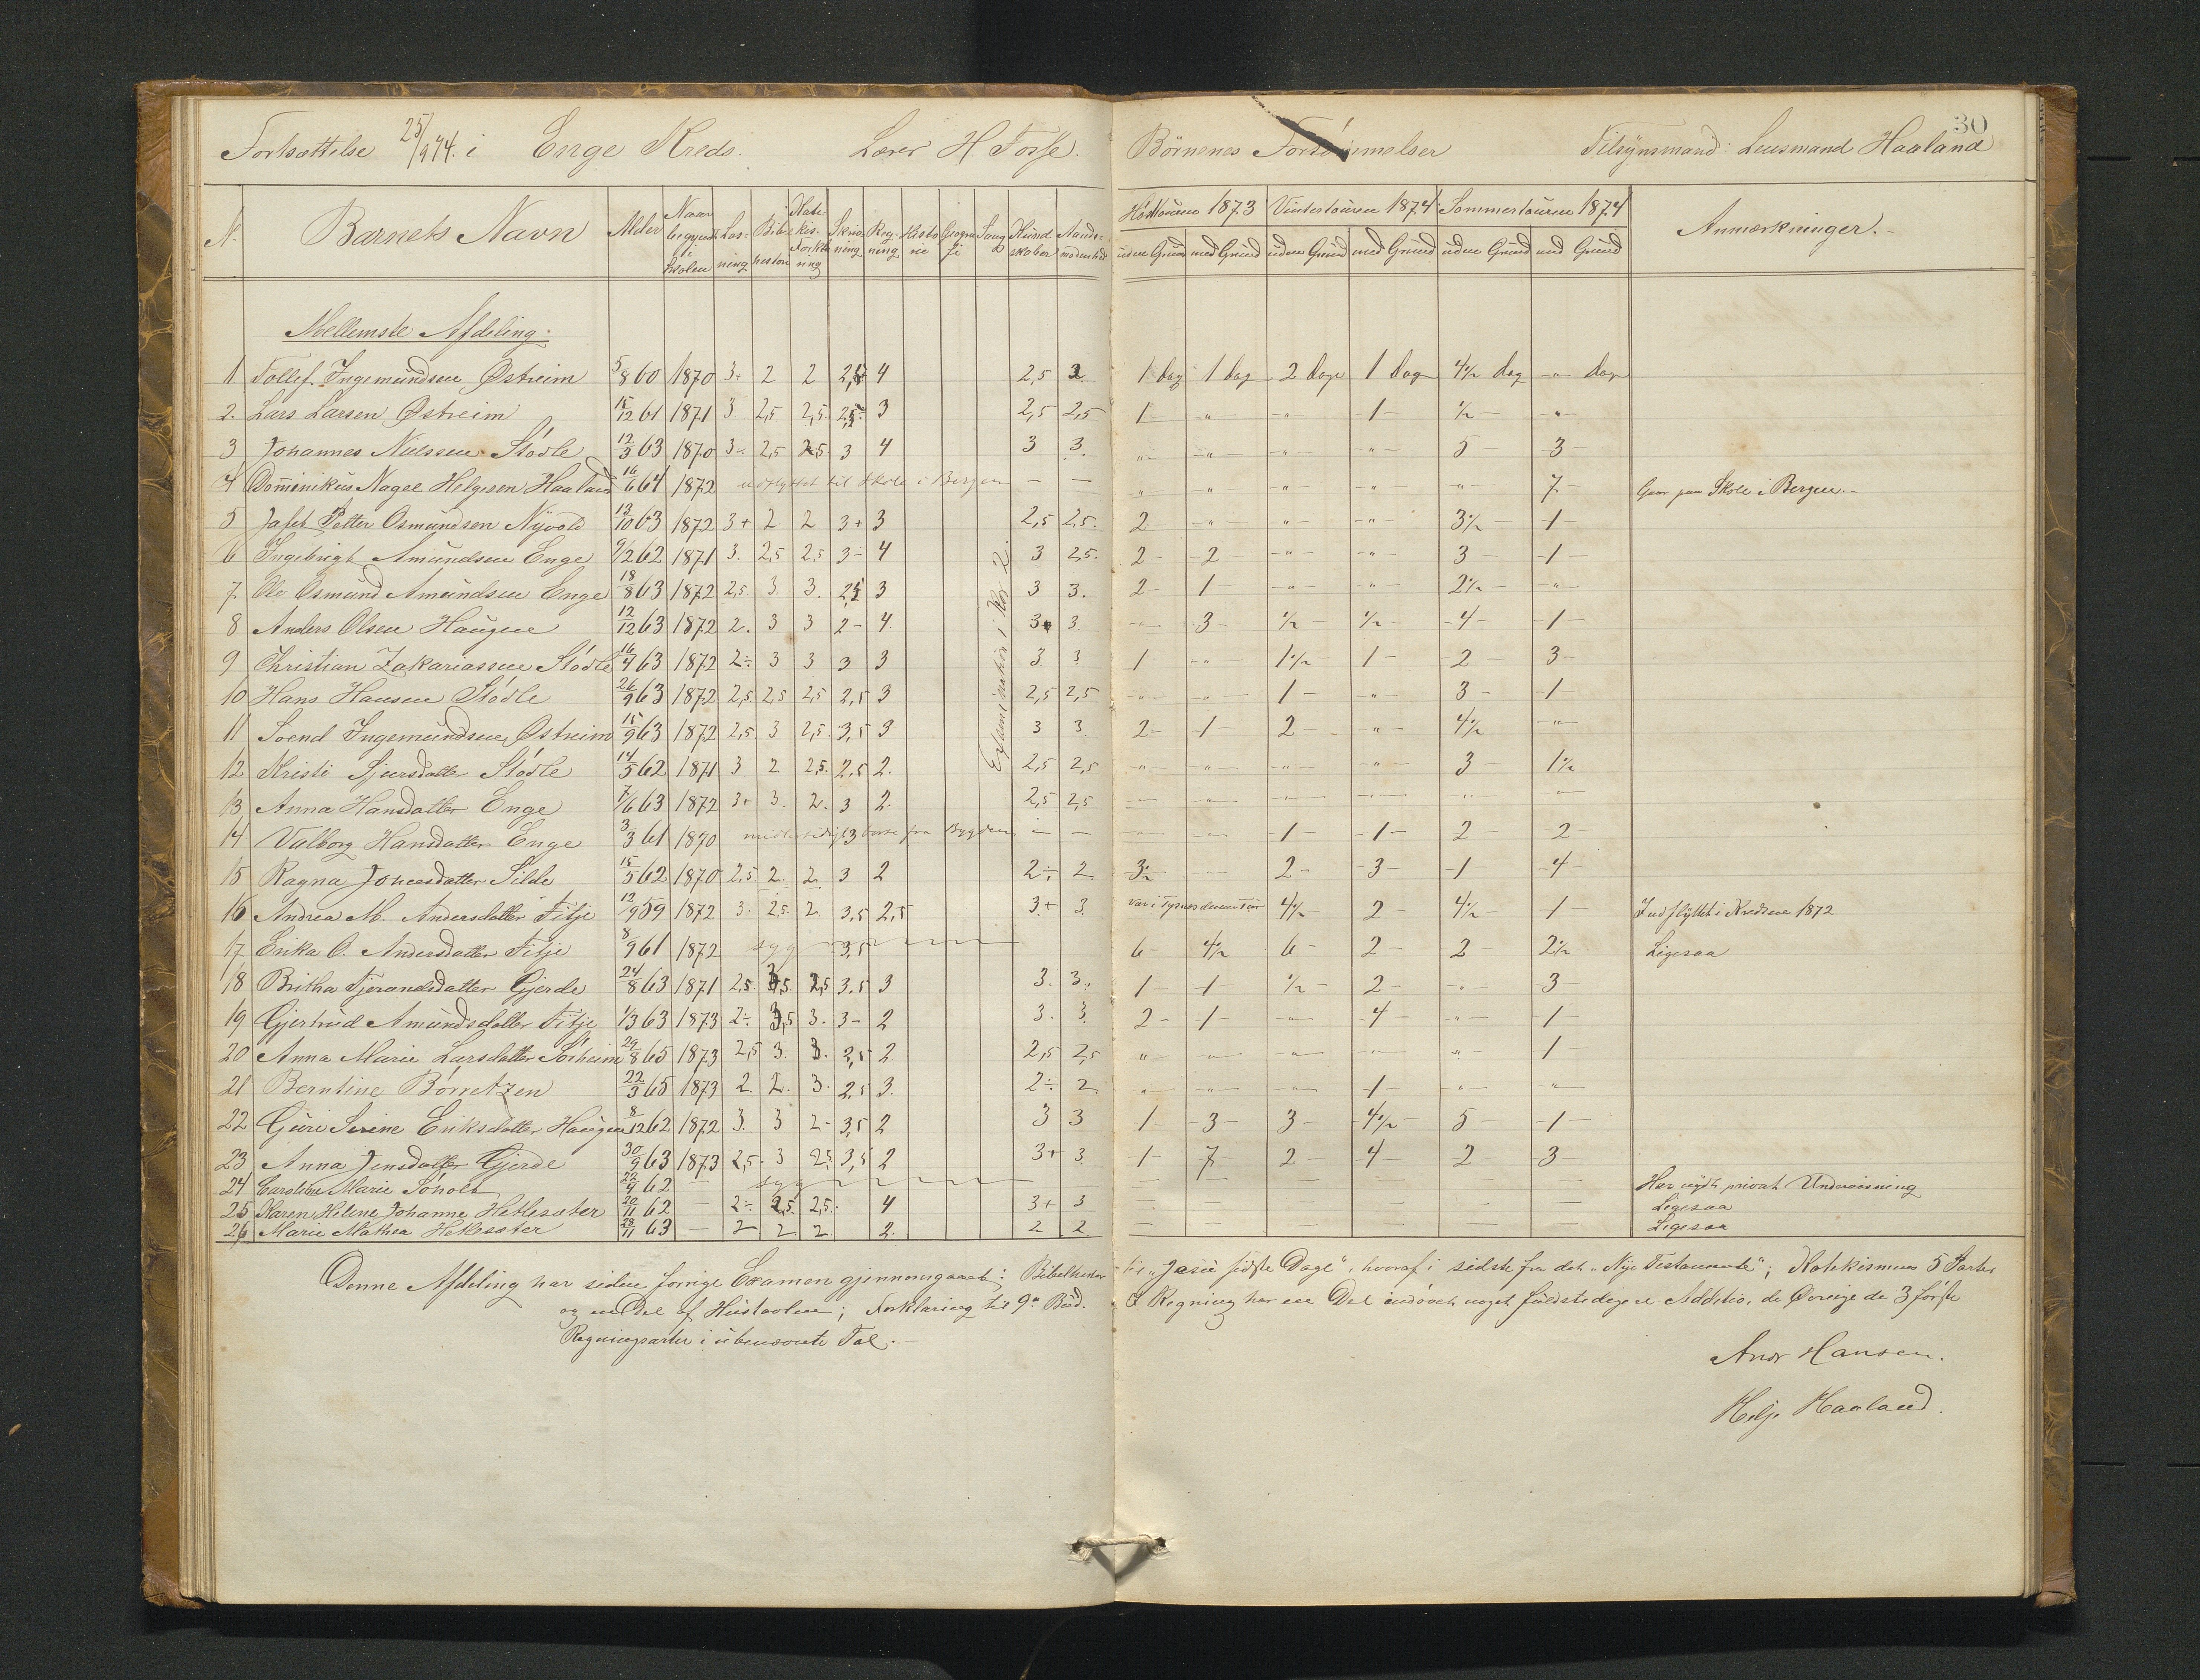 Fortsættelse 25/9 74. i Enge Kreds. Lærer H Fosse. Börnenes Forsömmelser Tilsÿnsmand: Lensmand Haaland 30
N. Barnets Navn Alder Naar begyndt i Skolen Læsning Bibelhistorie Katekis. Forklaring Skrivning Regning Historie Geografi Sang Kundskaber Høsttouren 1873 Vintertouren 1874 Sommertouren 1874 Anmærkninger.
uden Grund med Grund uden Grund med Grund uden Grund med Grund
Mellemste Afdeling.
1 Tollef Ingemundsen Østreim 5/8 60 1870 3+ 2 2 4 2,5 2 1 dag 1 dag 2 dage 1 dag 4½ dag " dag
2. Lars Larsen Østreim 15/12 61 1871 3 2,5 2,5 3 2,5 2,5 1 " " 1 ½ "
3 Johannes Nielssen Stödle 12/3 63 1870 3÷ 2,5 2,5 3 4 3 3. " " " " 5 3
4 Dominikus Nagel Helgesen Haaland 16/6 64 1872 udflyttet til Skole i Bergen — — " " " " " 7 Gaar paa Skole i Bergen.
5 Jafet Petter Osmundsen Nÿvold 13/10 63 1872 3+ 2 2 3+ 3 2,5 2,5. 2 " " " 3½ 1
6 Ingebrigt Amundsen Enge 9/12 62 1871 3. 2,5 2,5 3- 4 3 2,5. 2 2 " " 3 1
7. Ole Osmund Amundsen Enge 18/8 63 1872 2,5. 3. 3. 2,5 3 3 3. 2 1 " " 2½ "
8 Anders Olsen Haugen 12/12 63 1872 2. 3 3 2- 4. 3 3. " 3 ½ ½ 4 1
9 Christian Zakariassen Stödle 16/4 63 1872 2÷ 3 3 3 3 3 3 1 " 1½ 1 2 3
10 Hans Hansen Stödle 26/9 63 1872 2,5. 2,5 2,5 2,5 3 2,5 2,5 " " 1 " 3 1
11 Svend Ingemundsen Østreim 15/9 63 1872 2,5 3 2,5. 3,5 3 3 3. 2 1 2 " 4½ "
12 Kristi Sjursdatter Stödle 14/5 62 1871 3 2 2,5. 2,5 2. 2,5 2,5 " " " " 3 1½
13 Anna Hansdatter Enge 7/6 63 1872 3+ 3. 2. 3 2. 2,5 2,5 " " " " " "
14 Valborg Hansdatter Enge 3/3 61 1870 midlertidigt borte fra Bygden — — " " 1 1 2 2
15 Ragna Jonasdatter Silde 15/5 62 1870 2,5. 2. 2. 3 2 2÷ 2 3½ " 2 3 1 4
16 Andrea M. Andersdatter Fitje 12/9 59 1872 3. 2,5. 2. 3,5 2,5 3+ 3. Var i Tysnes denne Tour 4½ 2 4½ 1 Indflyttet i Kredsen 1872
17 Erika O. Andersdatter Fitje 8/9 61 1872 syg 3,5 6 4½ 6 2 2 2½ Ligesaa
18 Britha Tjerandsdatter Gjerde 24/8 63 1871 2,5. 2,5 3,5 3 3. 3. 1 1 ½ 2 " 3
19 Gjertrud Amundsdatter Fitje 1/3 63 1873 2÷ 3. 3- 2 3. 3. 2 1 " 4 " 1
20 Anna Marie Larsdatter Sörheim 29/8 65 1873 2,5 3. 3. 3,5 2 2,5 2,5 " " " " " 1
21 Berntine Börretzen 22/3 65 1873 2 2. 3. 2,5 3. 2÷ 2 " " " 1 " "
22 Guri Serine Eriksdatter Haugen 8/12 62 1872 3. 3 2- 3,5 2 3 3 1 3 3 4½ 5 1
23 Anna Jensdatter Gjerde 30/9 63 1873 2,5. 3 2,5. 3,5 2 3+ 3. 1 7 2 4 2 3
24 Caroline Marie 22/4 62 — syg Har nydt privat Underviisning
25 Karen Heline Johanne Hetlesæter 20/11 62 2÷ 2,5 2,5. 4 3+ 3 Ligesaa
26 Marie Mathea Hetlesæter 28/11 63 — 2 2 2 2. 2 2 Ligesaa
Examination i Kl. 2.
Denne Afdeling har siden forrige Examen gjennemgaaet: Bibelhistorie til „Jesu sidste Dage", hvoraf i sidste fra det „Nye Testamente"; Katekismens 5 Parter
og en Del af Hustavlen; Forklaring til 9de Bud. I Regning har en Del indövet noget fuldstedigere Additio, de Övrige de 3 förste
Regningsarter i ubenævnte Tal.
Andr Hansen.
Helje Haaland.